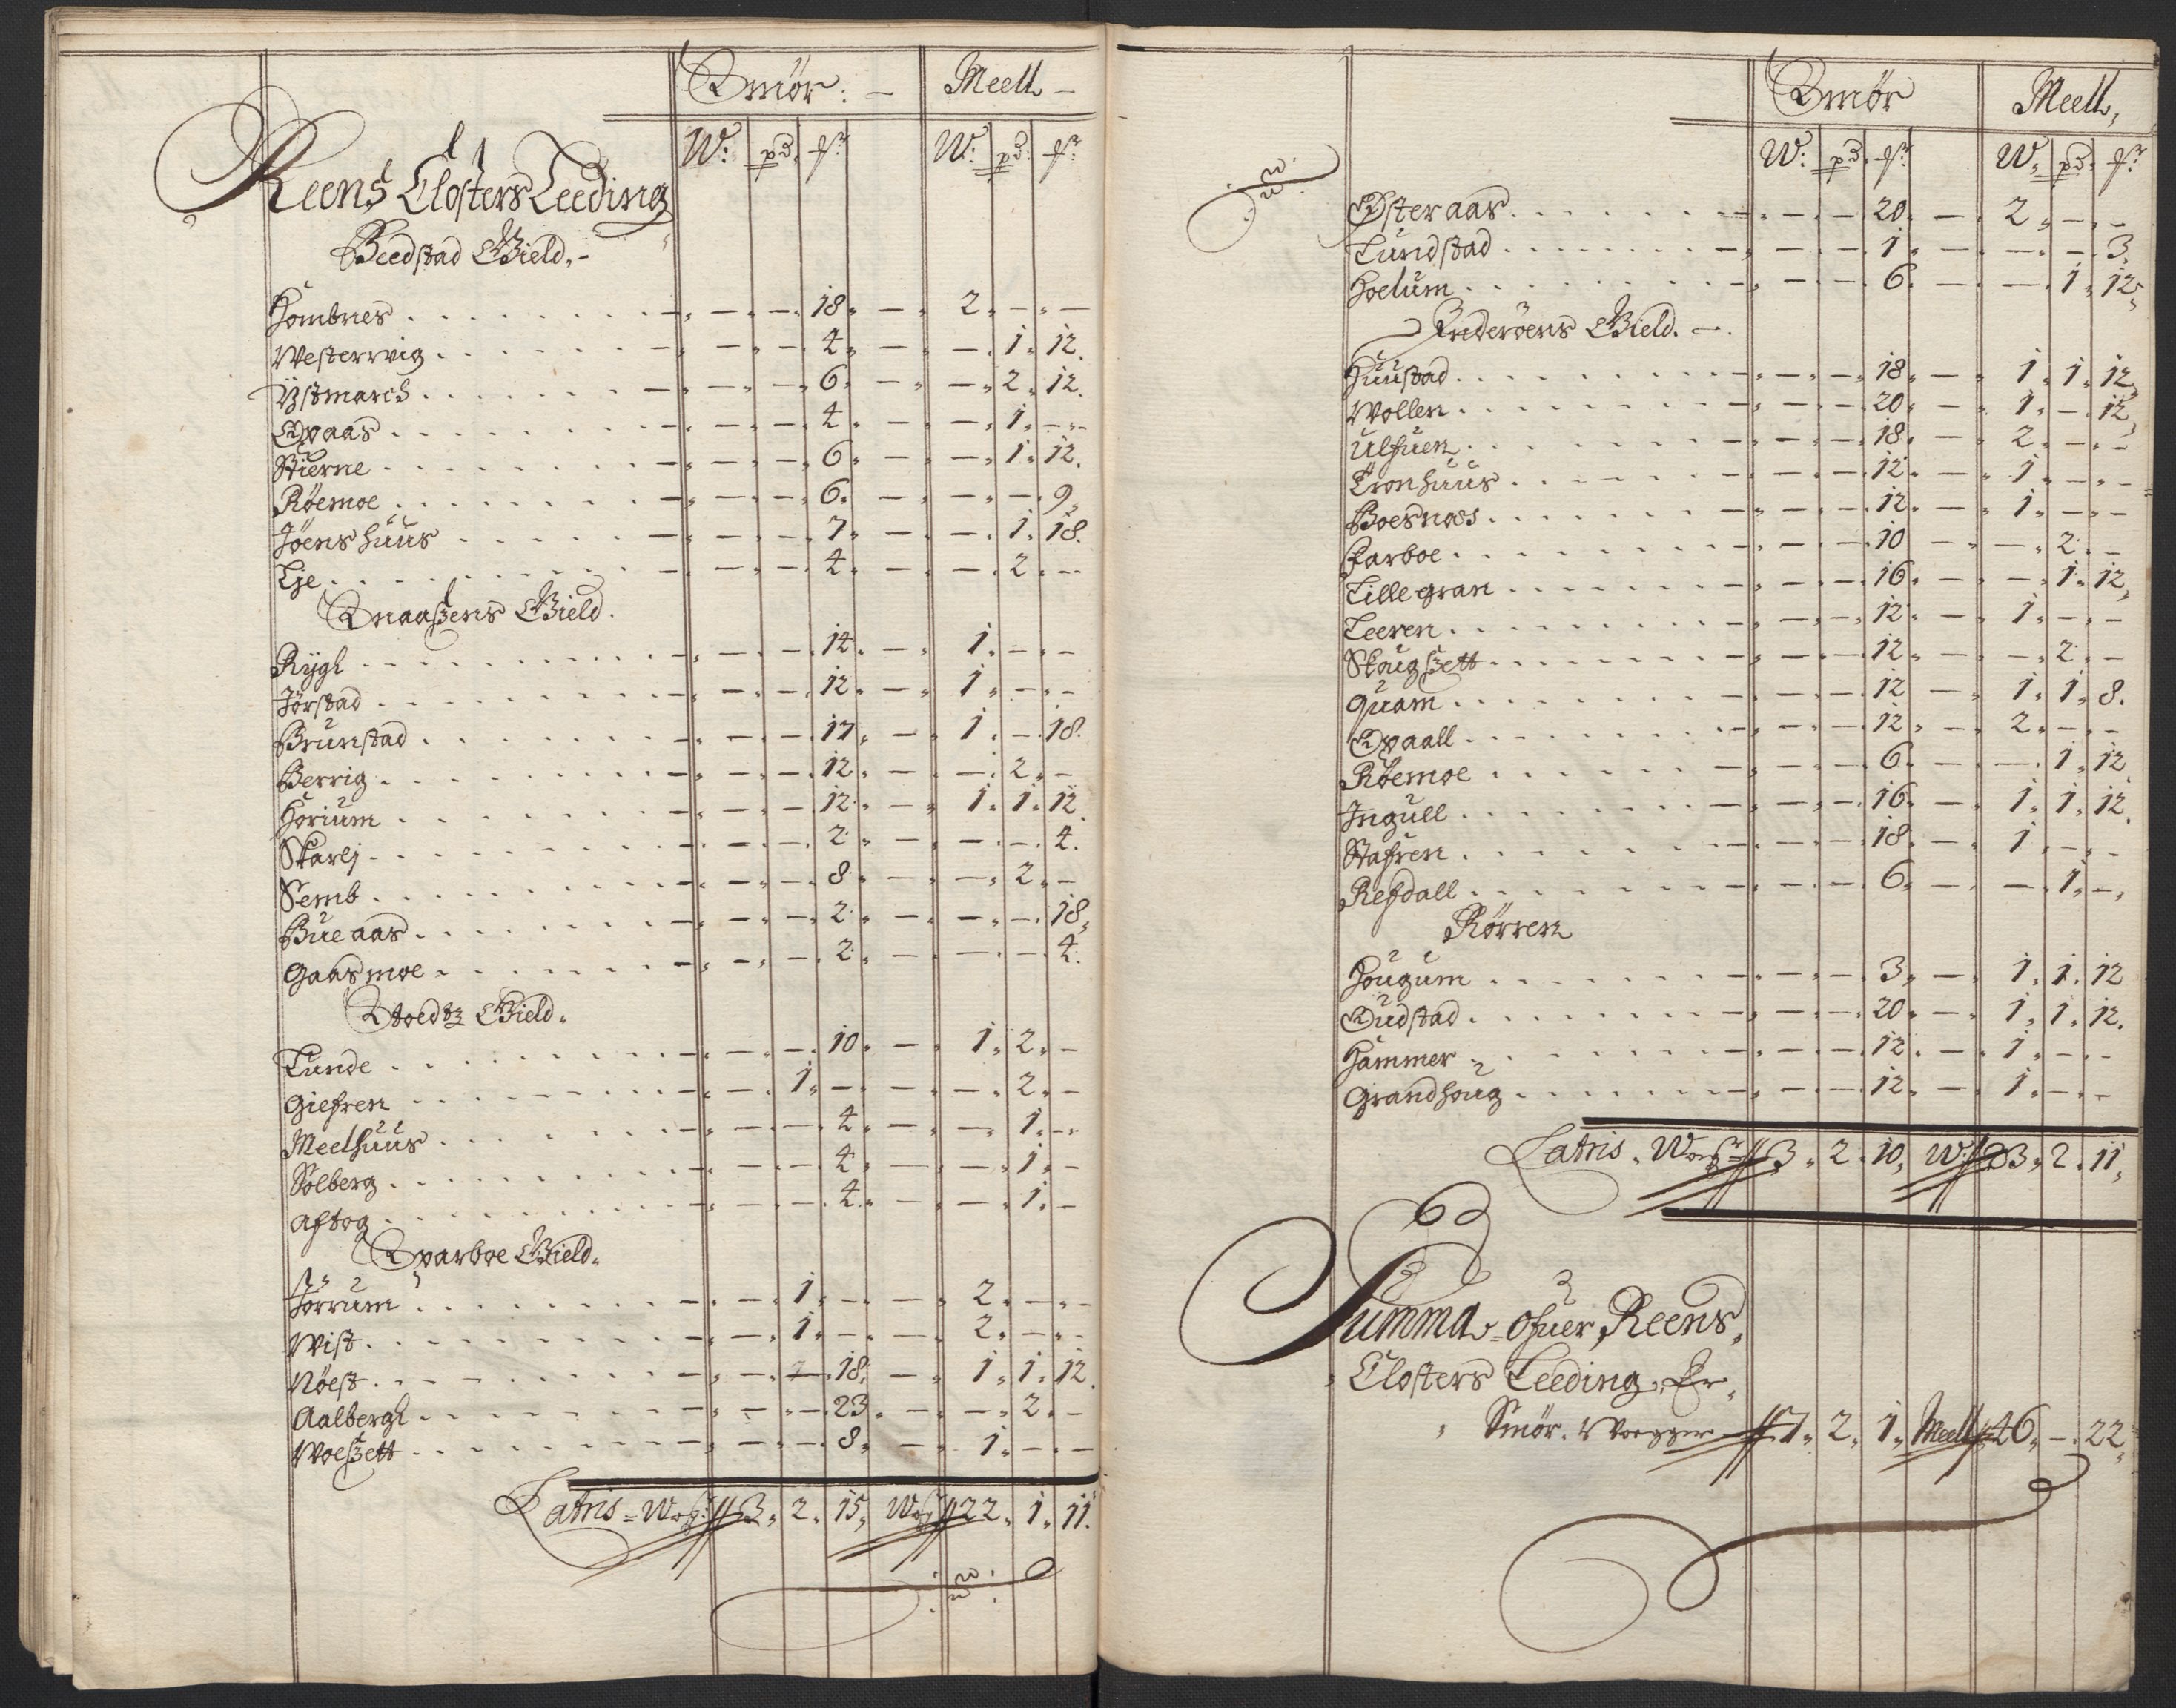 Smör: - Meell -
W: pd. fr: W: pd: fr:
Reens Closters Leeding
Beedstad Gield.-
Hombnes . . . - - - 18. - 2. - -
Westervig . . . - - - 4. - - 1. 12.
Ystmarch . . . - - - 6. - - 2. 12.
Opaas . . . - - - 4. - - 1. - -
Stierne . . . - - - 6. - - 1. 12.
Röemoe . . . - - - 6. - - - 9.
Jöens huus . . . - - - 7. - - 1. 18.
Lje . . . - - - 4. - - 2. -
Snaaßens Gield.
Rygh . . . - - - 14. - 1. - -
Jörstad . . . - - - 12. - 1. - -
Brunstad . . . - - - 17. - 1. - 18.
Berrig . . . - - - 12. - - 2. -
Horium . . . - - - 12. - 1. 1. 12.
Skarlj . . . - - - 2. - - - 4.
Semb . . . - - - 8. - - 2. -
Bue aas . . . - - - 2. - - - 18.
Gaasmoe . . . - - - 2. - - - 4.
Stoedtz Gield.
Lunde . . . - - - 10. - 1. 2. -
Giefren . . . - - 1. - - - 2. -
Meelhuus . . . - - - 4. - - 1. -
Solberg . . . - - - 4. - - 1. -
Aftog . . . - - - 4. - - 1. -
Sparboe Gield.
Jörrum . . . - - 1. - - 2. - -
Wist . . . - - 1. - - 2. - -
Nöest . . . - - - 18. - 1. 1. 12.
Aalbergh . . . - - - 23. - - 2. -
Woeßett . . . - - - 8. - 1. - -
Latris = Wog: 3. 2. 15. Wog 22. 1. 11.
Smör Meell,
W: pd. fr: W. pd: fr:
Österaas . . . - - - 20. - 2. - -
Lundstad . . . - - - 1. - - - 3.
Hoelum . . . - - - 6. - - 1. 12.
Inderöens Gield.
Huustad . . . - - - 18. - 1. 1. 12.
Wollen . . . - - - 20. - 1. - 12.
Ulfuen . . . - - - 18. - 2. - -
Tronhuus . . . - - - 12. - 1. - -
Boesnæs . . . - - - 12. - 1. - -
Farboe . . . - - - 10 - - 2. -
Lille gran . . . - - - 16. - - 1. 12.
Leeren . . . - - - 12. - 1. - -
Skougßett . . . - - - 12. - - 2. -
Quam . . . - - - 12 - 1. 1. 8.
Opaall . . . - - - 12. - 2. - -
Röemoe . . . - - - 6. - - 1. 12.
Ingull . . . - - - 16. - 1. 1. 12.
Stafren . . . - - - 18. - 1. - -
Refdall . . . - - - 6. - - 1. -
Rörren
Hougum . . . - - - 3. - 1. 1. 12
Gudstad . . . - - - 20. - 1. 1. 12.
Hammer . . . - - - 12. - 1. - -
Grandhoug . . . - - - 12. - 1. - -
Latris. Wog 3. 2. 10. W: 23. 2. 11.
Summa - ofuer Reens
Closters Leeding. Er.
Smör. Woegger 7. 2. 1. Meell 46. -. 22.